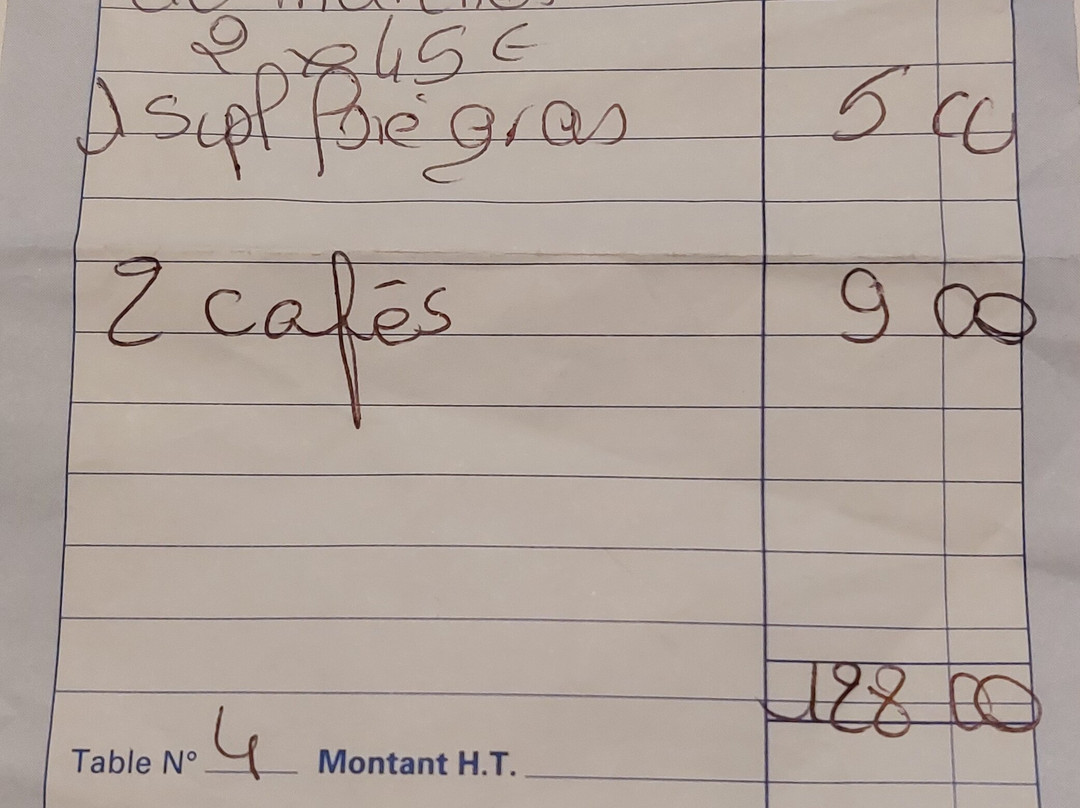 2 x 45 €
1 Supl foie gras 5 00
2 cafés 9 00
128 00
Table N° 4 Montant H.T.